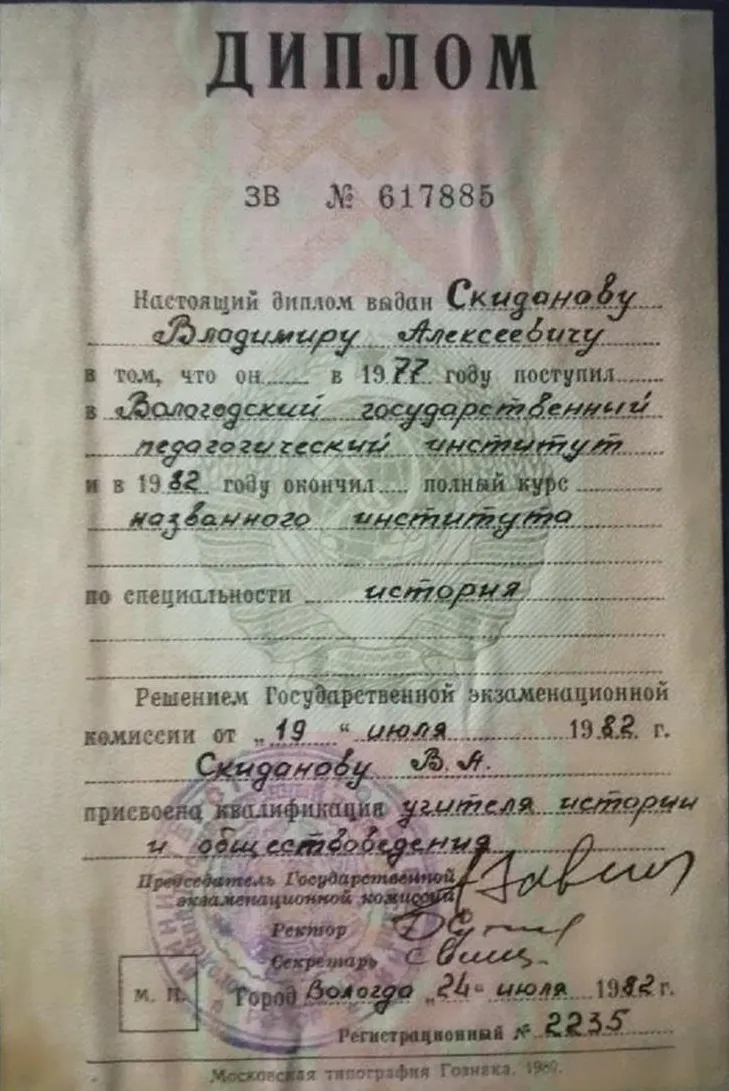 ДИПЛОМ
ЗВ № 617885
Настоящий диплом выдан Скиданову
Владимиру Алексеевичу
в том, что он в 1977 году поступил
в Вологодский государственный
педагогический институт
и в 1982 году окончил полный курс
названного института
по специальности история
Решением Государственной экзаменационной
комиссии от „19“ июля 1982 г.
Скиданову В. А.
присвоена квалификация учителя истории
и обществоведения
Председатель Государственной
экзаменационной комиссии
Ректор
Секретарь
М. П. Город Вологда „24“ июля 1982 г.
Регистрационный № 2235
Московская типография Гознака.